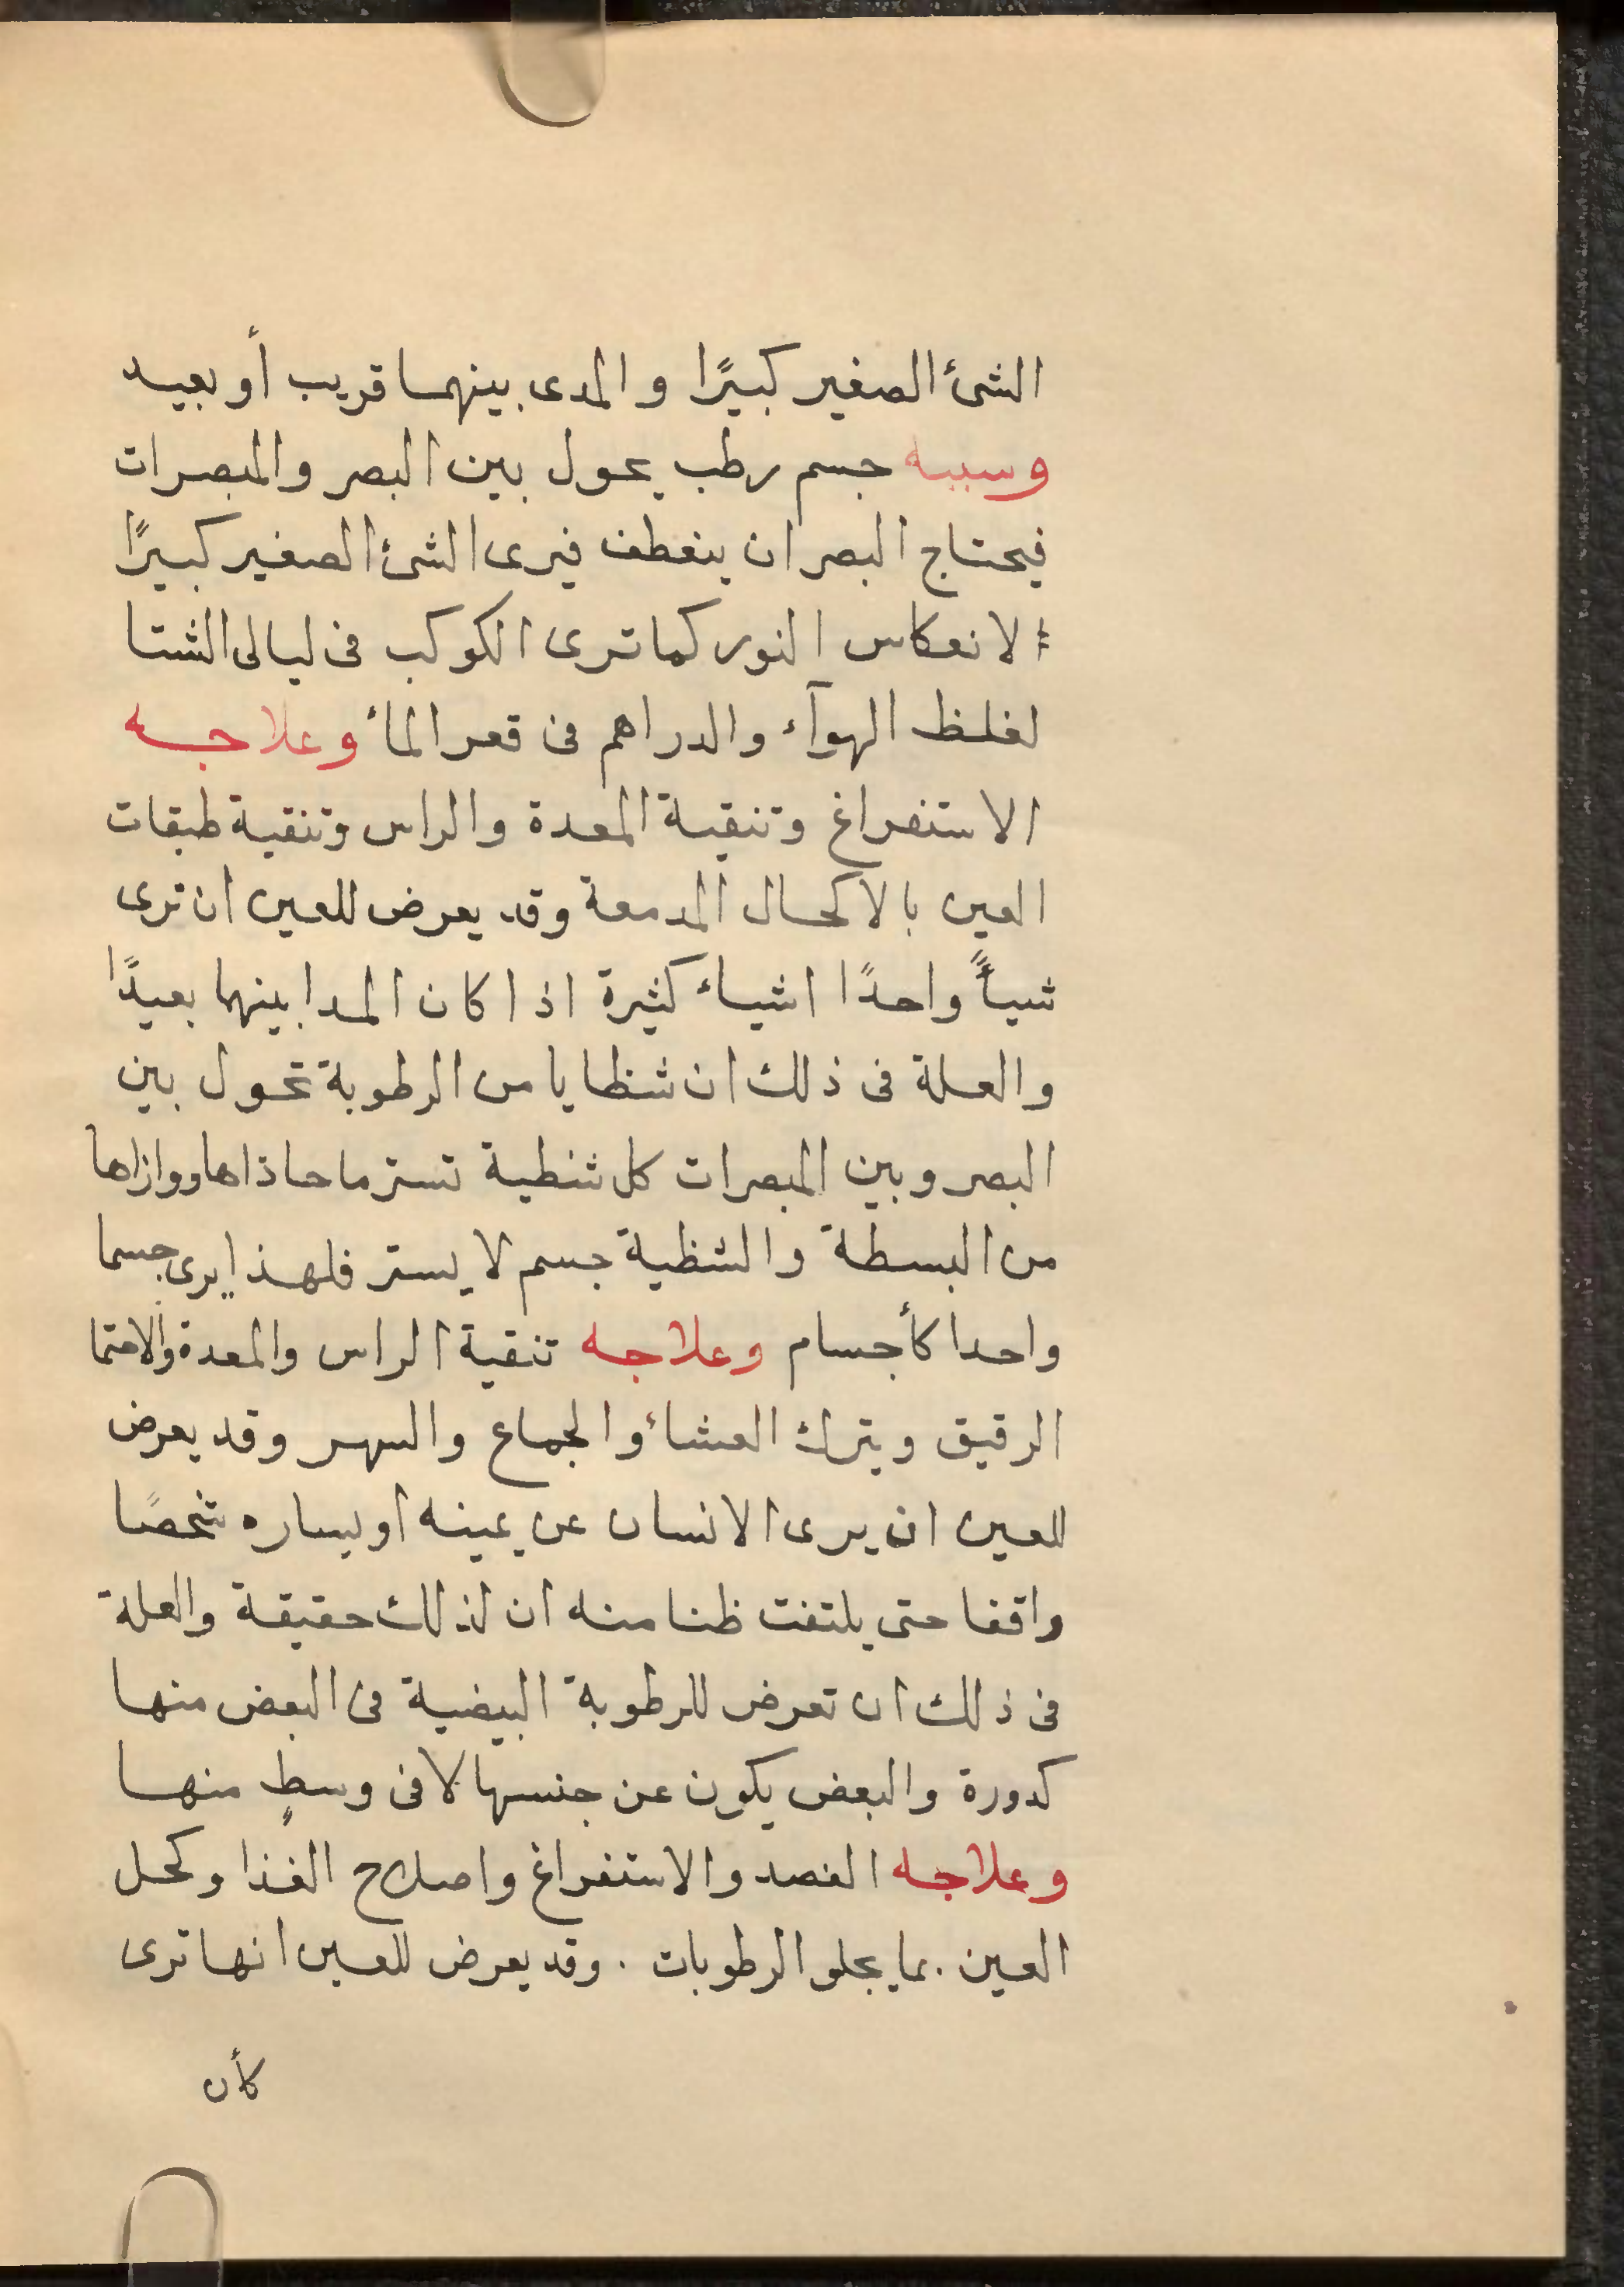 الشئ الصغير كبيرًا و المدى بينهما قريب أو بعيد
وسببه جسم رطب يحول بين البصر والمبصرات
فيحتاج البصر ان ينعطف فيرى الشئ الصغير كبيرًا
الانعكاس النور كما ترى الكوكب فى ليالى الشتا
لغلظ الهوآء والدراهم فى قعر المأ وعلاجه
الاستفراغ وتنقية المعدة والراس وتنقية طبقات
العين بالاكحال المدمعة وقد يعرض للعين ان ترى
شيأً واحدًا اشياء كثيرة اذا كان المدا بينهما بعيدًا
والعلة فى ذلك ان شظايا من الرطوبة تحول بين
البصر وبين المبصرات كل شظية تستر ما حاذاها ووازاها
من البسطة والشظية جسم لا يستر فلهذا يرى جسما
واحدا كأجسام وعلاجه تنقية الراس والمعدة والاحتما
الرقيق ويترك العشاء والجماع والسهر وقد يعرض
للعين ان يرى الانسان عن يمينه او يساره شخصًا
واقفا حتى يلتفت ظنا منه ان لذلك حقيقة والعلة
فى ذلك ان تعرض للرطوبة البيضية فى البعض منها
كدورة والبعض يكون عن جنسها لا فى وسطٍ منها
وعلاجه الفصد والاستفراغ واصلاح الغذا وكحل
العين بما يجلو الرطوبات . وقد يعرض للعين انها ترى
كأن